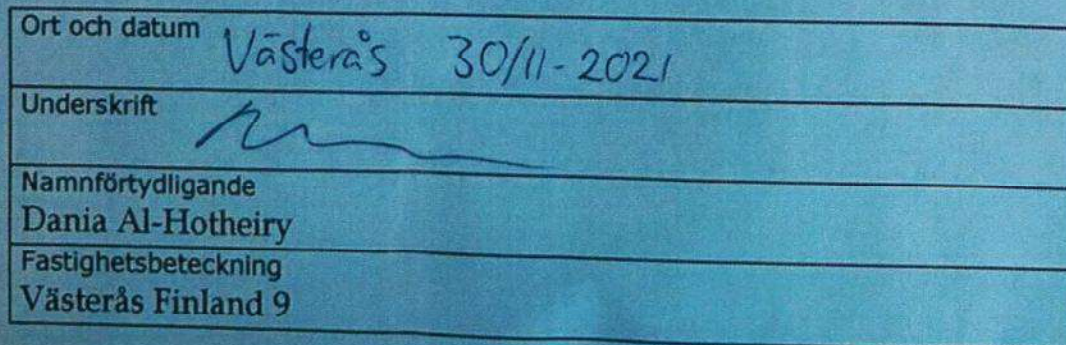 Ort och datum
Västerås 30/11-2021
Underskrift
Namnförtydligande
Dania Al-Hotheiry
Fastighetsbeteckning
Västerås Finland 9